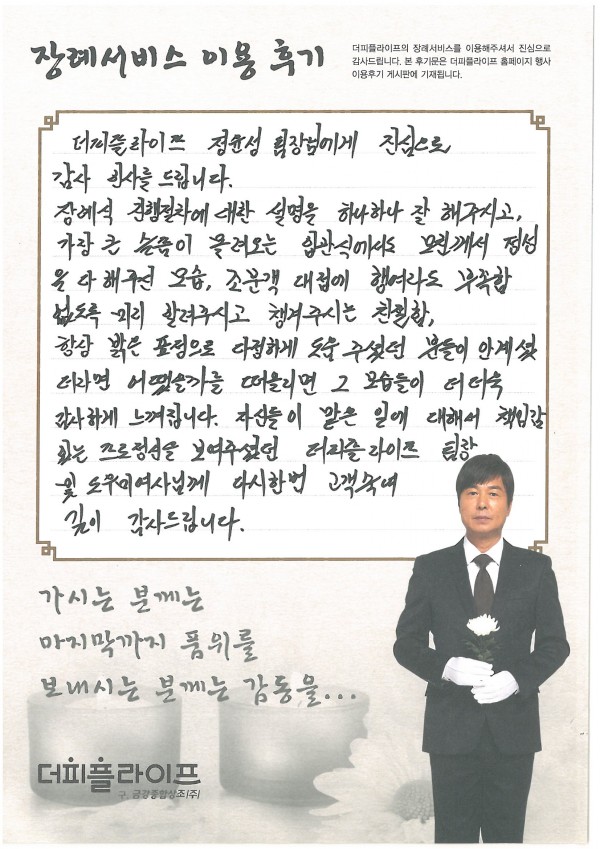 장례서비스 이용 후기
더피플라이프의 장례서비스를 이용해주셔서 진심으로
감사드립니다. 본 후기문은 더피플라이프 홈페이지 행사
이용후기 게시판에 기재됩니다.
더피플라이프 정윤성 팀장님에게 진심으로
감사 인사를 드립니다.
장례식 진행절차에 대한 설명을 하나하나 잘 해주시고,
가장 큰 슬픔이 몰려오는 입관식에서도 모친께서 정성
을 다 해주신 모습, 조문객 대접에 행여라도 부족함
없도록 미리 알려주시고 챙겨주시는 친절함,
항상 밝은 표정으로 다정하게 도움 주셨던 분들이 안계셨
더라면 어땠을까를 떠올리면 그 모습들이 더더욱
감사하게 느껴집니다. 자신들이 맡은 일에 대해서 책임감
있는 프로정신을 보여주셨던 더피플라이프 팀장
및 도우미여사님께 다시한번 고객숙여
깊이 감사드립니다.
가시는 분께는
마지막까지 품위를
보내시는 분께는 감동을...
더피플라이프
구. 금강종합상조(주)